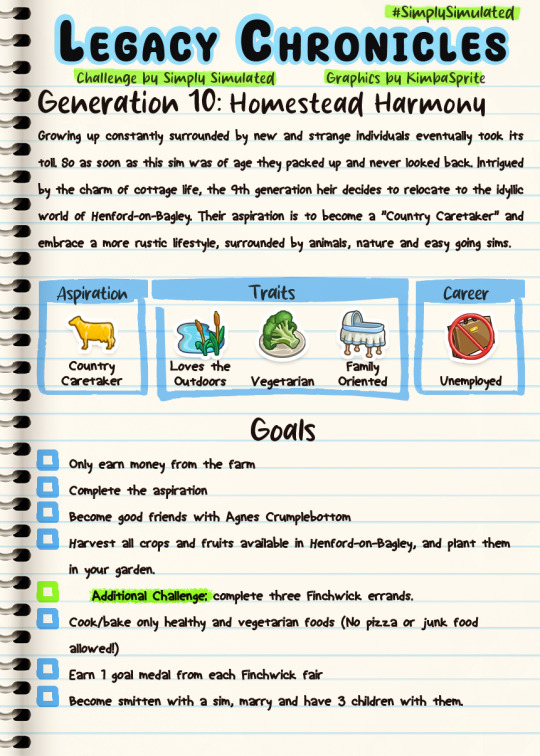 #SimplySimulated
LEGACY CHRONICLES
Challenge by Simply Simulated Graphics by KimbaSprite
Generation 10: Homestead Harmony
Growing up constantly surrounded by new and strange individuals eventually took its
toll. So as soon as this sim was of age they packed up and never looked back. Intrigued
by the charm of cottage life, the 9th generation heir decides to relocate to the idyllic
world of Henford-on-Bagley. Their aspiration is to become a "Country Caretaker" and
embrace a more rustic lifestyle, surrounded by animals, nature and easy going sims.
Aspiration
Country
Caretaker
Traits
Loves the
Outdoors
Vegetarian
Family
Oriented
Career
Unemployed
Goals
Only earn money from the farm
Complete the aspiration
Become good friends with Agnes Crumplebottom
Harvest all crops and fruits available in Henford-on-Bagley, and plant them
in your garden.
Additional Challenge: complete three Finchwick errands.
Cook/bake only healthy and vegetarian foods (No pizza or junk food
allowed!)
Earn 1 goal medal from each Finchwick fair
Become smitten with a sim, marry and have 3 children with them.